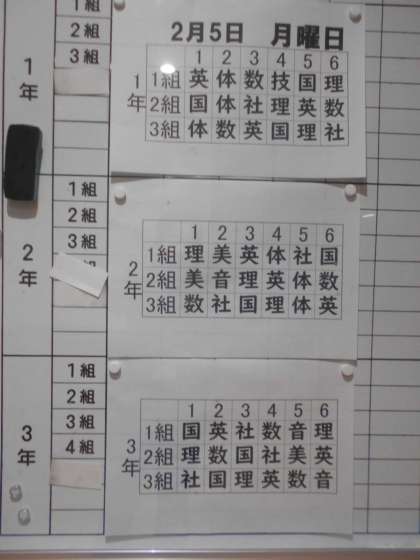 1年
1組
2組
3組
2月5日 月曜日
1年
1 2 3 4 5 6
1組 英 体 数 技 国 理
2組 国 体 社 理 英 数
3組 体 数 英 国 理 社
2年
1組
2組
3組
2年
1 2 3 4 5 6
1組 理 美 英 体 社 国
2組 美 音 理 英 体 数
3組 数 社 国 理 体 英
3年
1組
2組
3組
4組
3年
1 2 3 4 5 6
1組 国 英 社 数 音 理
2組 理 数 国 社 美 英
3組 社 国 理 英 数 音